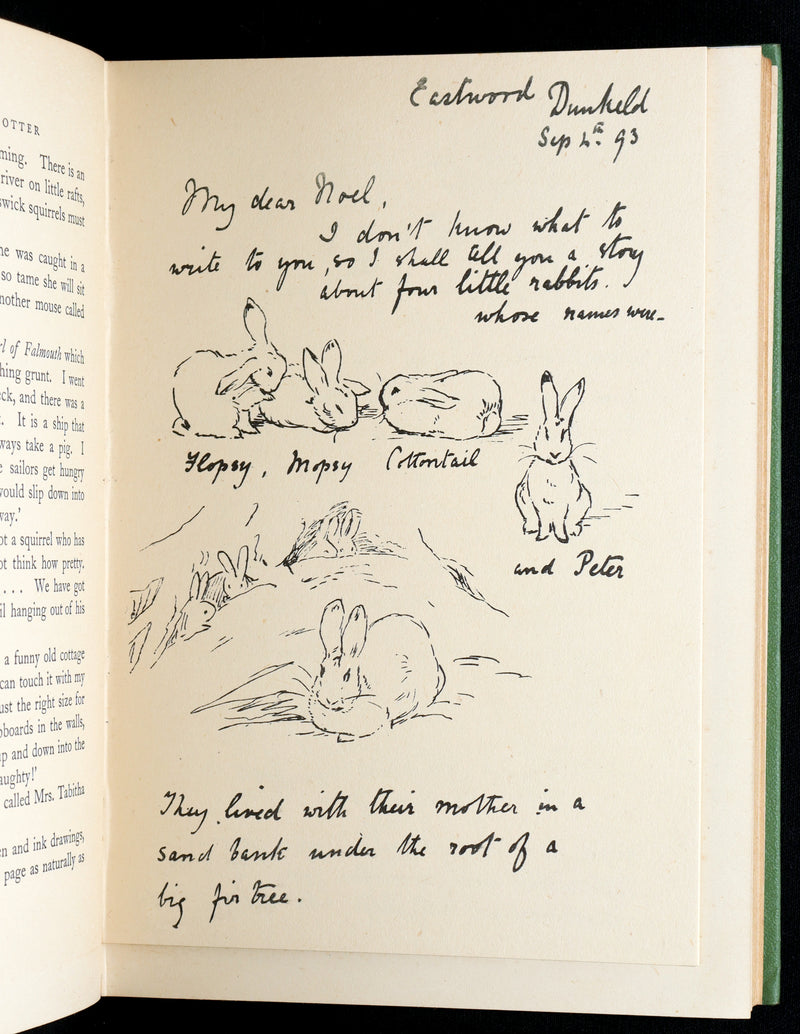 OTTER
ming. There is an
river on little rafts,
swick squirrels must
ne was caught in a
so tame she will sit
nother mouse called
rl of Falmouth which
hing grunt. I went
eck, and there was a
t. It is a ship that
ways take a pig. I
e sailors get hungry
would slip down into
way.'
ot a squirrel who has
ot think how pretty.
. . . We have got
il hanging out of his
a funny old cottage
can touch it with my
ust the right size for
pboards in the walls,
up and down into the
aughty!'
called Mrs. Tabitha
en and ink drawings,
page as naturally as
Eastwood Dunkeld
Sep 4th 93
My dear Noel,
I don't know what to
write to you, so I shall tell you a story
about four little rabbits.
whose names were-
Flopsy, Mopsy Cottontail
and Peter
They lived with their mother in a
sand bank under the root of a
big fir tree.